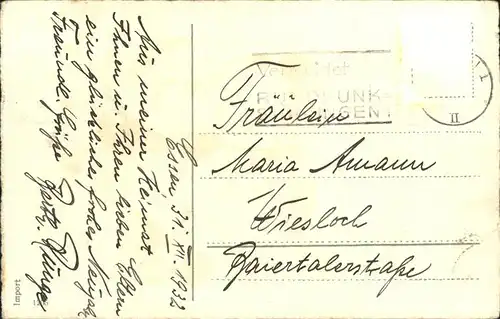 Essen, 31. XII. 1932
Aus meiner Heimat
Ihnen u. Ihren lieben Eltern
ein glückliches frohes Neujahr
Freundl. Grüße
Import
II
Fräulein
Maria Amann
Wiesloch
Baiertalerstraße